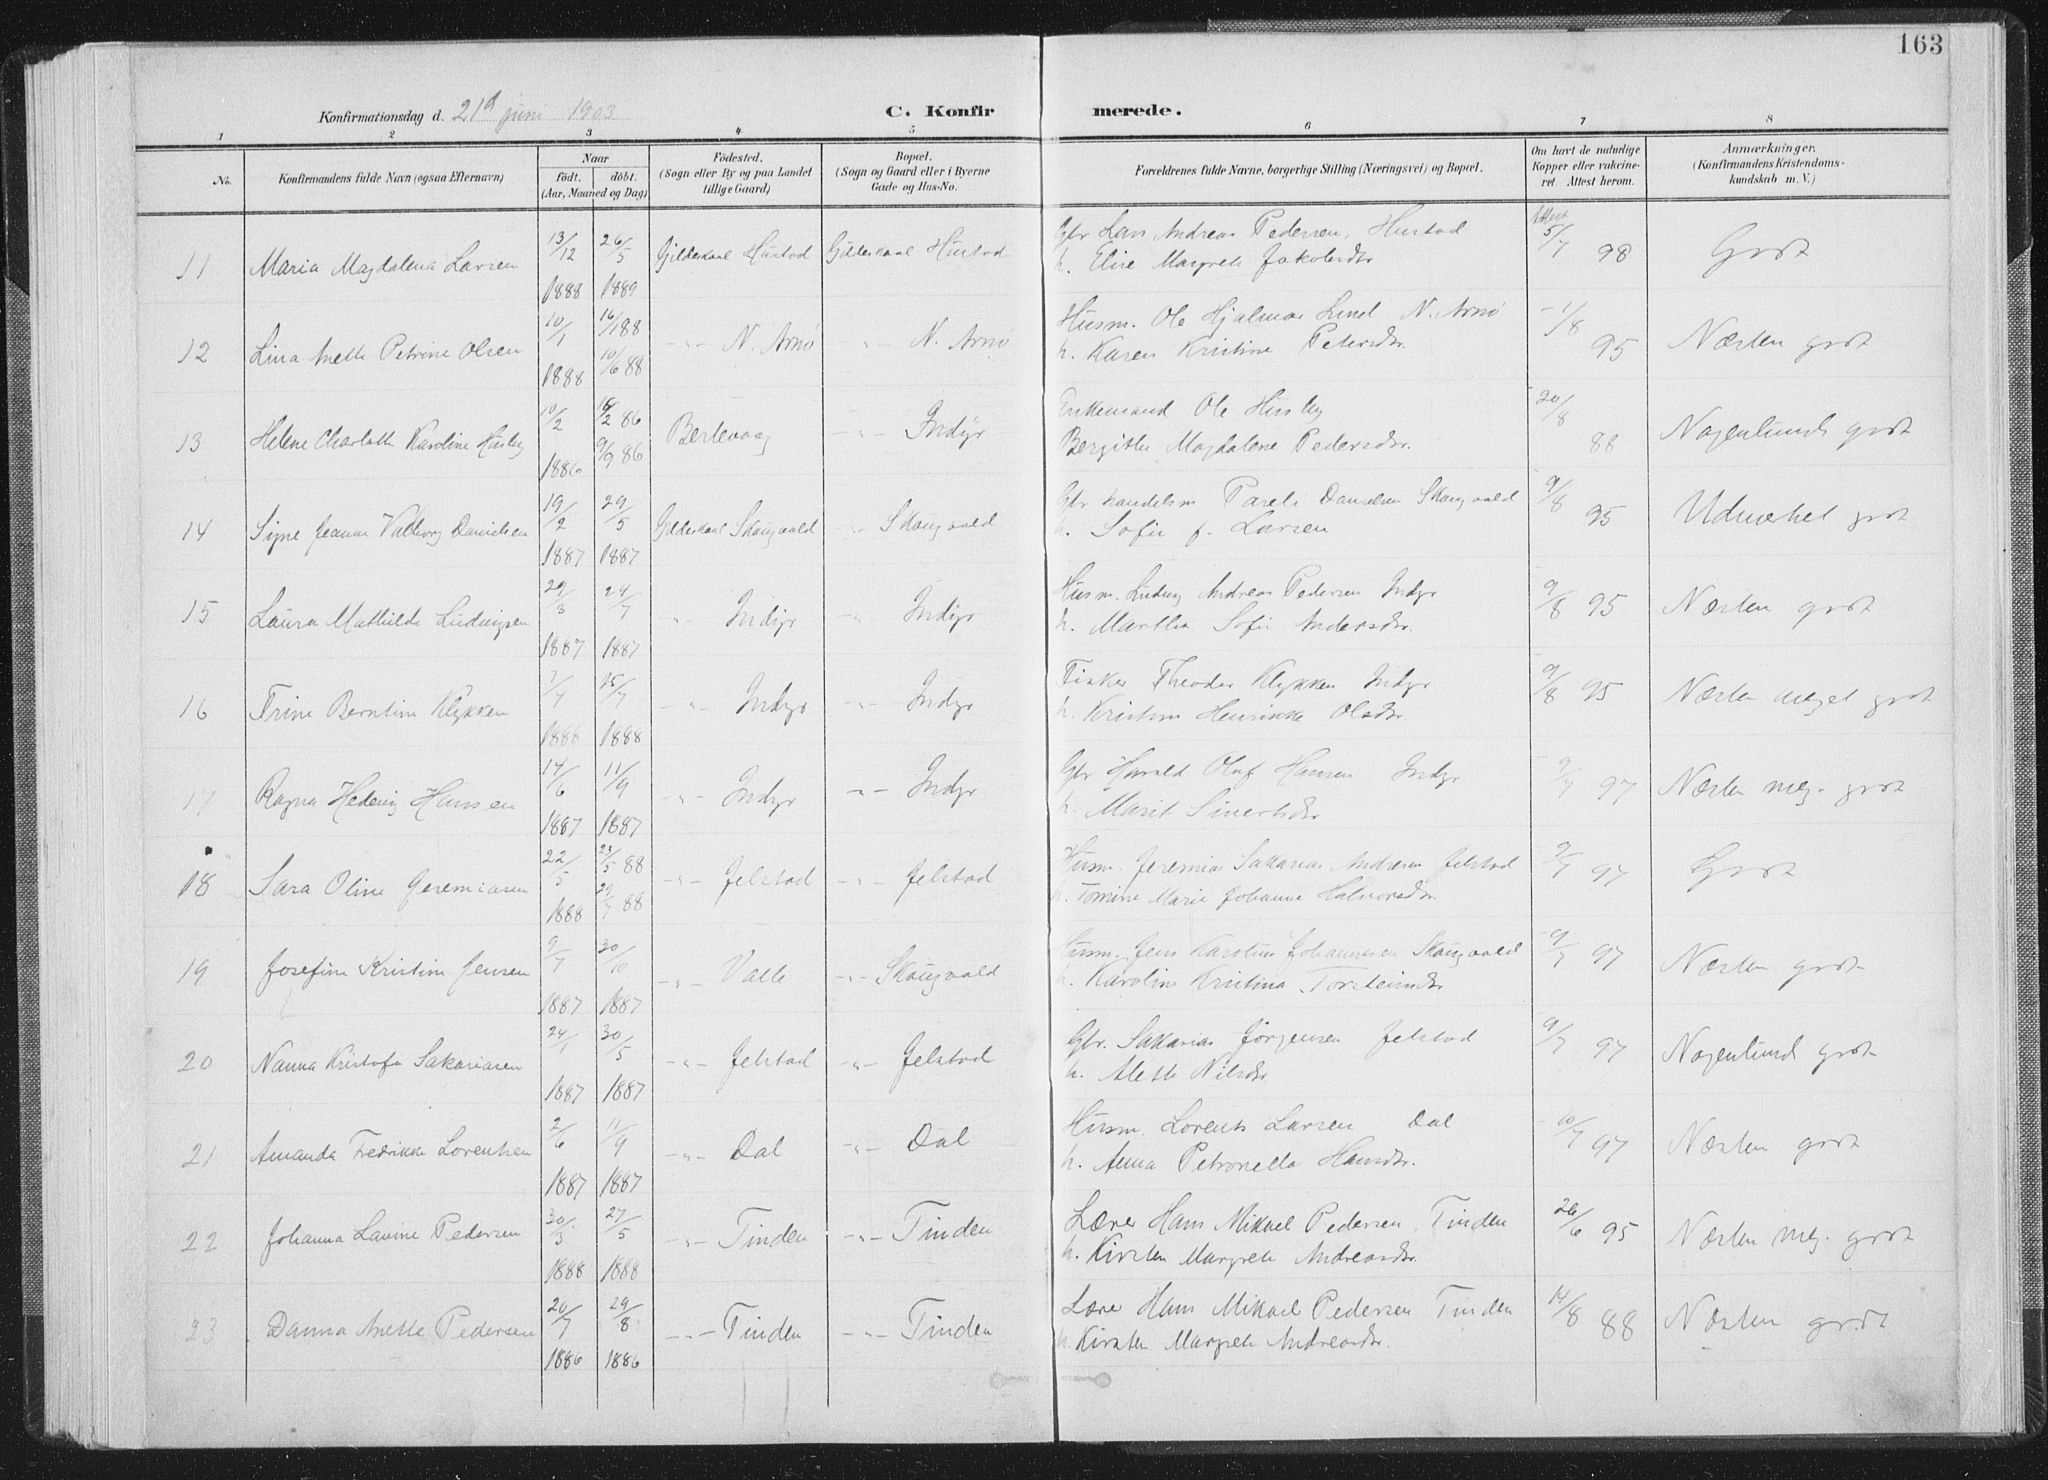 163
Konfirmationsdag d. 21d juni 1903
C. Konfirmerede.
1 2 3 4 5 6 7 8
No.
Konfirmandens fulde Navn (ogsaa Efternavn)
Naar
født. døbt.
(Aar, Maaned og Dag)
Fødested.
(Sogn eller By og paa Landet
tillige Gaard)
Bopæl.
(Sogn og Gaard eller i Byerne
Gade og Hus-No.
Forældrenes fulde Navne, borgerlige Stilling (Næringsvei) og Bopæl.
Om havt de naturlige
Kopper eller vakcine-
ret. Attest herom.
Anmærkninger.
(Konfirmandens Kristendoms-
kundskab m. V.)
11 Maria Magdalena Larsen 13/12 1888 26/5 1889 Gildeskaal Hustad Gildeskaal Hustad
Gbr Lars Andreas Pedersen, Hustad
h. Elise Margrete Jakobsdtr
Attest 5/7 98 Godt
12 Lina Anette Petrine Olsen 10/1 1888 16/1 88 10/6 88 -"- N. Arnø -"- N. Arnø
Husm. Ole Hjalmar Lind N. Arnø
h. Karen Kristine Petersdtr.
-1/8 95 Næsten godt
13 Helene Charlotte Karoline Husby 10/2 1886 15/2 86 9/9 86 Berlevaag -"- Indyr
Enkemand Ole Husby
Bergitte Magdalene Pedersdtr.
20/8 88 Nogenlunde godt
14 Signe Jeanna Valborg Danielsen 19/2 1887 29/5 1887 Gildeskaal Skaugvold -"- Skaugvold
Gbr handelsm Pareli Danielsen Skaugvold
h. Sofie f. Larsen
9/8 95 Udmerket godt
15 Laura Mathilde Ludvigsen 29/3 1887 24/7 1887 -"- Indyr -"- Indyr
Husm. Ludvig Andreas Pedersen Indyr
h. Martha Sofie Andersdtr.
9/8 95 Næsten godt
16 Trine Berntine Klykken 7/4 1888 15/7 1888 -"- Indyr -"- Indyr
Fisker Theodor Klykken Indyr
h. Kristine Henrikke Olsdtr.
9/8 95 Næsten meget godt
17 Ragna Hedevig Hansen 14/6 1887 11/9 1887 -"- Indyr -"- Indyr
Gbr Harald Oluf Hansen Indyr
h. Marit Sivertsdtr
9/7 97 Næsten meg. godt
18 Sara Oline Jeremiasen 22/5 1888 23/5 88 29/7 88 -"- Jelstad -"- Jelstad
Husm. Jeremias Sakarias Andresen Jelstad
h. Tomine Marie Johanna Halvorsdtr.
9/7 97 Godt
19 Josefine Kristine Jensen 9/7 1887 30/10 1887 -"- Valle -"- Skaugvold
Husm. Jens Karolius Johannesen Skaugvold
h. Karoline Kristina Torsteinsdtr
-9/7 97 Næsten godt
20 Nanna Kristofa Sakariasen 24/1 1887 30/5 1887 -"- Jelstad -"- Jelstad
Gbr. Sakarias Jørgensen Jelstad
h. Alette Nilsdtr
9/7 97 Nogenlunde godt
21 Amanda Fredrikke Lorentsen 2/6 1887 11/9 1887 -"- Dal -"- Dal
Husm. Lorents Larsen Dal
h. Anna Petronella Hansdtr.
-10/7 97 Næsten godt
22 Johanna Lavine Pedersen 30/3 1888 27/5 1888 -"- Tinden -"- Tinden
Lærer Hans Mikael Pedersen, Tinden
h. Kirsten Margrete Andreasdtr.
26/6 95 Næsten meg. godt
23 Danna Anette Pedersen 20/7 1886 29/8 1886 -"- Tinden -"- Tinden
Lærer Hans Mikael Pedersen Tinden
h. Kirsten Margrete Andreasdtr.
14/8 88 Næsten godt